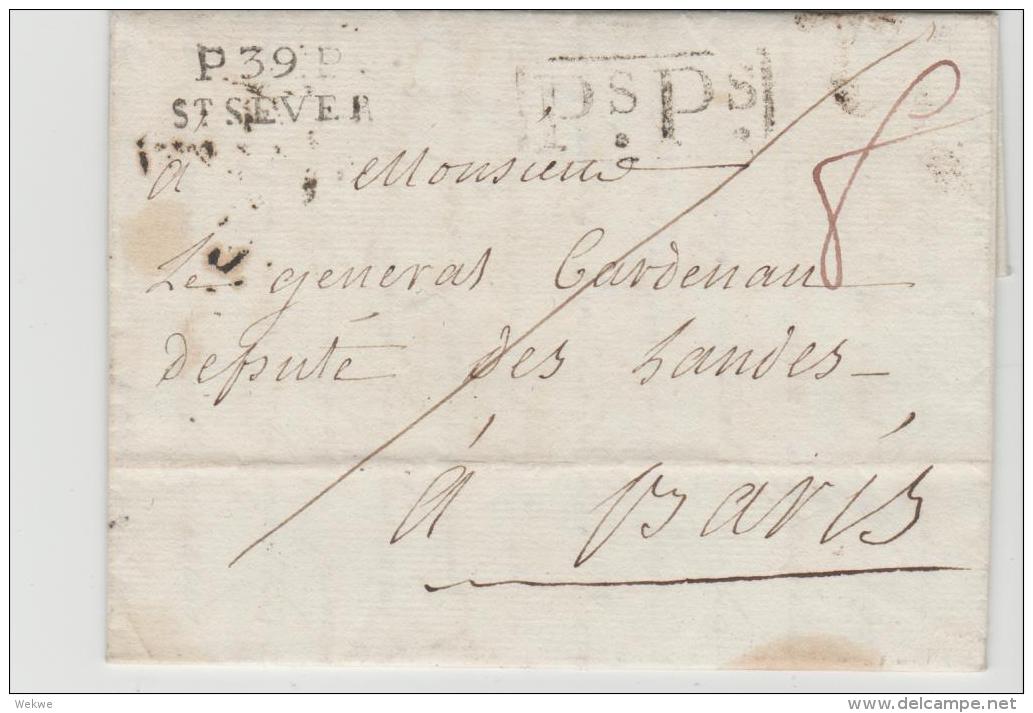 P.39.P.
ST SEVER
Ps. Ps.
8
a Monsieur
Le general Cardenau
deputé des Landes -
á Paris
Wekwe
www.delcampe.net